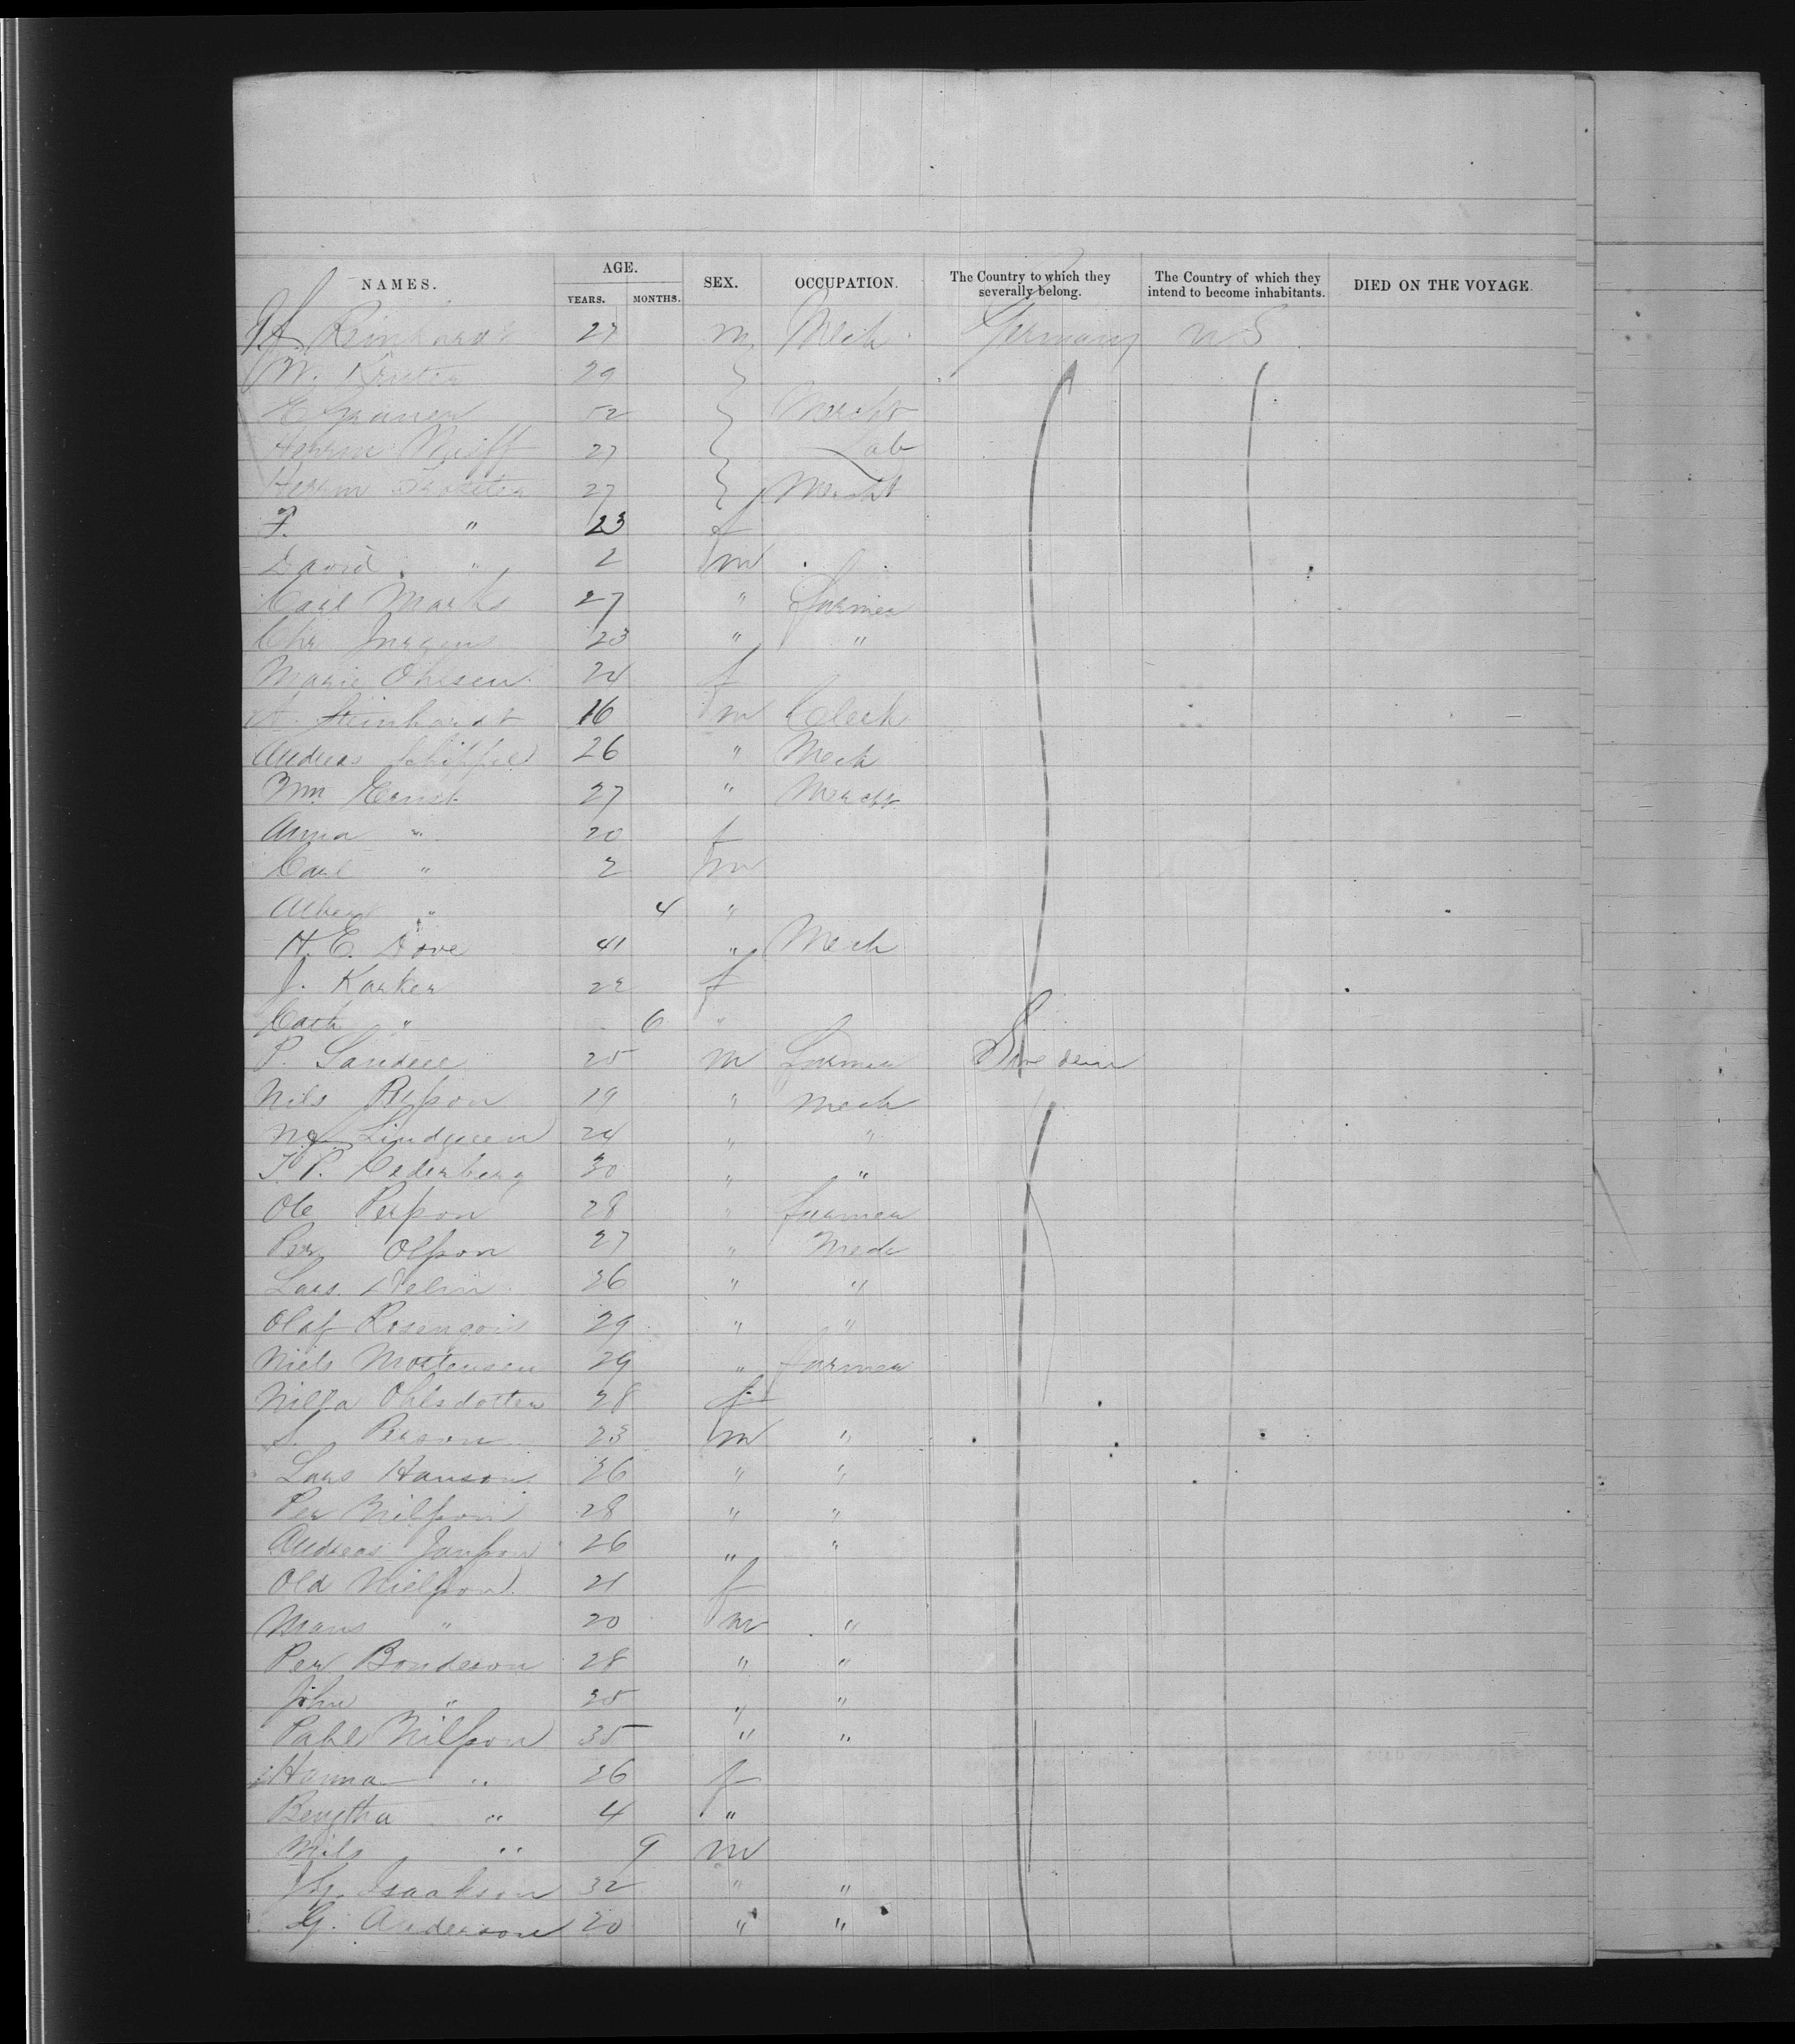 NAMES. AGE. SEX. OCCUPATION. The Country to which they severally belong. The Country of which they intend to become inhabitants. DIED ON THE VOYAGE.
YEARS. MONTHS.
Reinhardt 27 m Mech Germany U S
W. 29
E 52 Mercht
Herrm 27 Lab
Herrm 27 Mercht
F. " 23 f
David " 2 m
Carl Marks 27 " farmer
Chr Jurgens 23 " "
Marie Ohlsen 24 f
A. Steinhardt 16 m Clerk
Andreas 26 " Mech
Wm Ernst 27 " Mercht
Anna " 20 f
Carl " 2 m
Albert " 4 "
H. E. Dove 41 " Mech
J. Karker 22 f
Cath " 6 "
P. Sandell 25 m farmer Sweden
Nils 19 " Mech
Lindgreen 24 " "
T. P. Cederberg 30 " "
Ole Perſson 28 " farmer
Per Olſson 27 " Mech
Lars 36 " "
Olaf 29 " "
Niels Mortensen 29 " farmer
Nilla Ohlsdotter 28 f
S. Person 23 m "
Lars Hanson 36 " "
Per Nilſson 28 " "
Andreas Janſson 26 " "
Ola Nielſson 21 f
Mans " 20 m "
Per Bonderon 28 " "
John " 25 " "
Pahl Nilſson 35 " "
Hanna " 26 f
Bengtha " 4 "
Nils " 9 m
Isaakson 32 " "
G. Anderson 20 " "